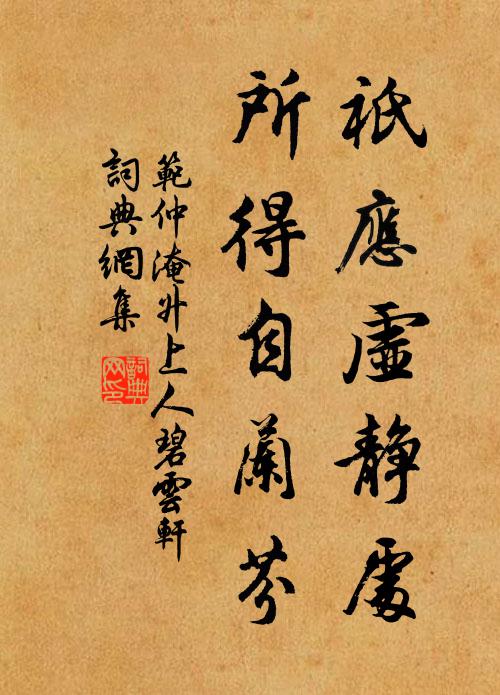 祇應虛靜處
所得自蘭芬
範仲淹升上人碧雲軒
詞典網集
詞典
网印